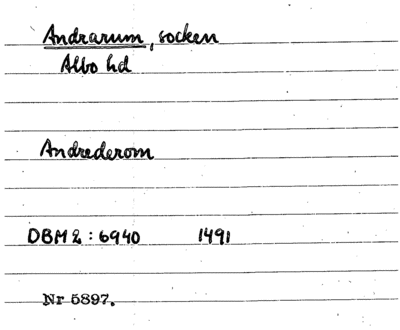 Andrarum, socken
Albo hd
Andrederom
DBM 2 : 6940 1491
Nr 5897.